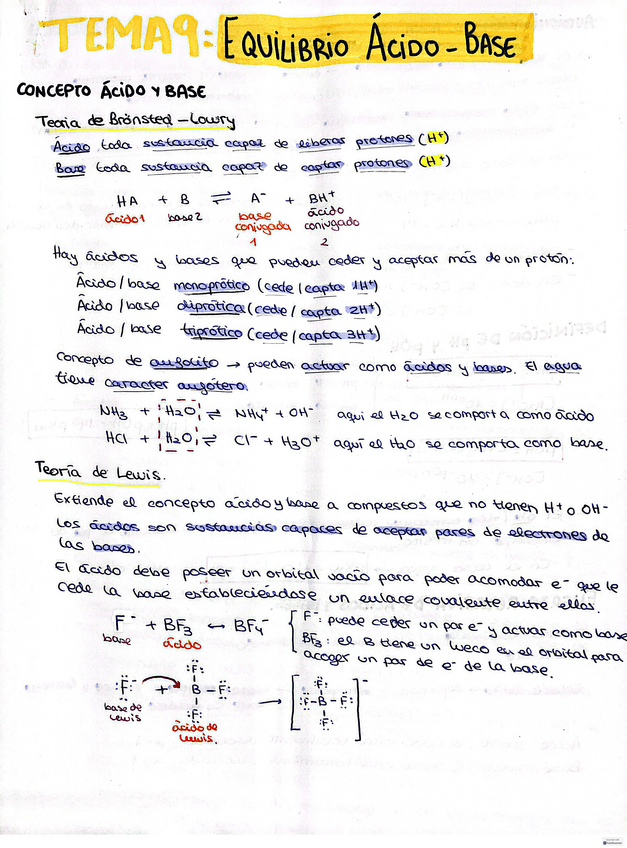 TEMA 9: EQUILIBRIO ÁCIDO-BASE
CONCEPTO ÁCIDO Y BASE
Teoria de Brönsted-Lowry
Ácido toda sustancia capaz de liberar protones (H⁺)
Base toda sustancia capaz de captar protones (H⁺)
HA + B ⇌ A⁻ + BH⁺
ácido1 base2 base conjugada 1 ácido conjugado 2
Hay ácidos y bases que pueden ceder y aceptar más de un protón:
Ácido/base monoprótico (cede/capta 1H⁺)
Ácido/base diprótica (cede/capta 2H⁺)
Ácido/base triprótico (cede/capta 3H⁺)
Concepto de anfolito → pueden actuar como ácidos y bases. El agua
tiene caracter anfótero.
NH₃ + H₂O ⇌ NH₄⁺ + OH⁻ aqui el H₂O se comporta como ácido
HCl + H₂O ⇌ Cl⁻ + H₃O⁺ aquí el H₂O se comporta como base.
Teoría de Lewis.
Extiende el concepto ácido y base a compuestos que no tienen H⁺ o OH⁻
Los ácidos son sustancias capaces de aceptar pares de electrones de
las bases.
El ácido debe poseer un orbital vacio para poder acomodar e⁻ que le
cede la base estableciéndose un enlace covalente entre ellas.
F⁻ + BF₃ ↔ BF₄⁻
base ácido
F⁻: puede ceder un par e⁻ y actuar como base
BF₃: el B tiene un hueco en el orbital para
acoger un par de e⁻ de la base.
:F:⁻ + :F: B – F: :F: → [:F – B – F: :F: :F:]⁻
base de Lewis
ácido de Lewis.